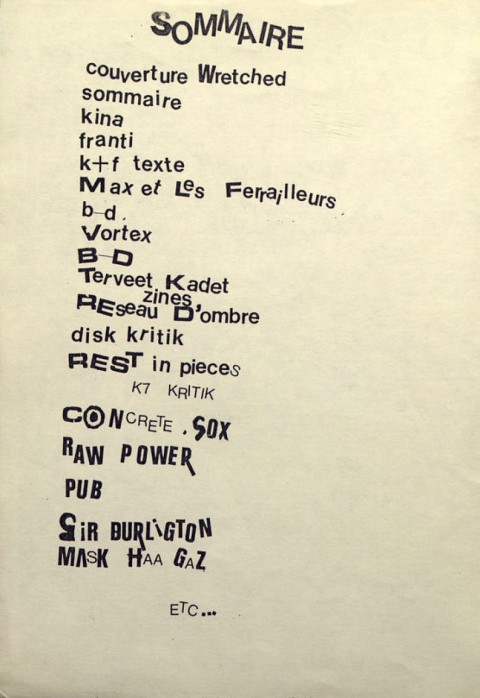 SOMMAIRE
couverture Wretched
sommaire
kina
franti
k+f texte
Max et Les Ferrailleurs
b-d.
Vortex
B-D
Terveet Kadet
zines
REseau D'ombre
disk kritik
REST in pieces
K7 KRITIK
CONCRETE.SOX
RAW POWER
PUB
SiR BURLiGTON
MASK HAA GAZ
ETC...